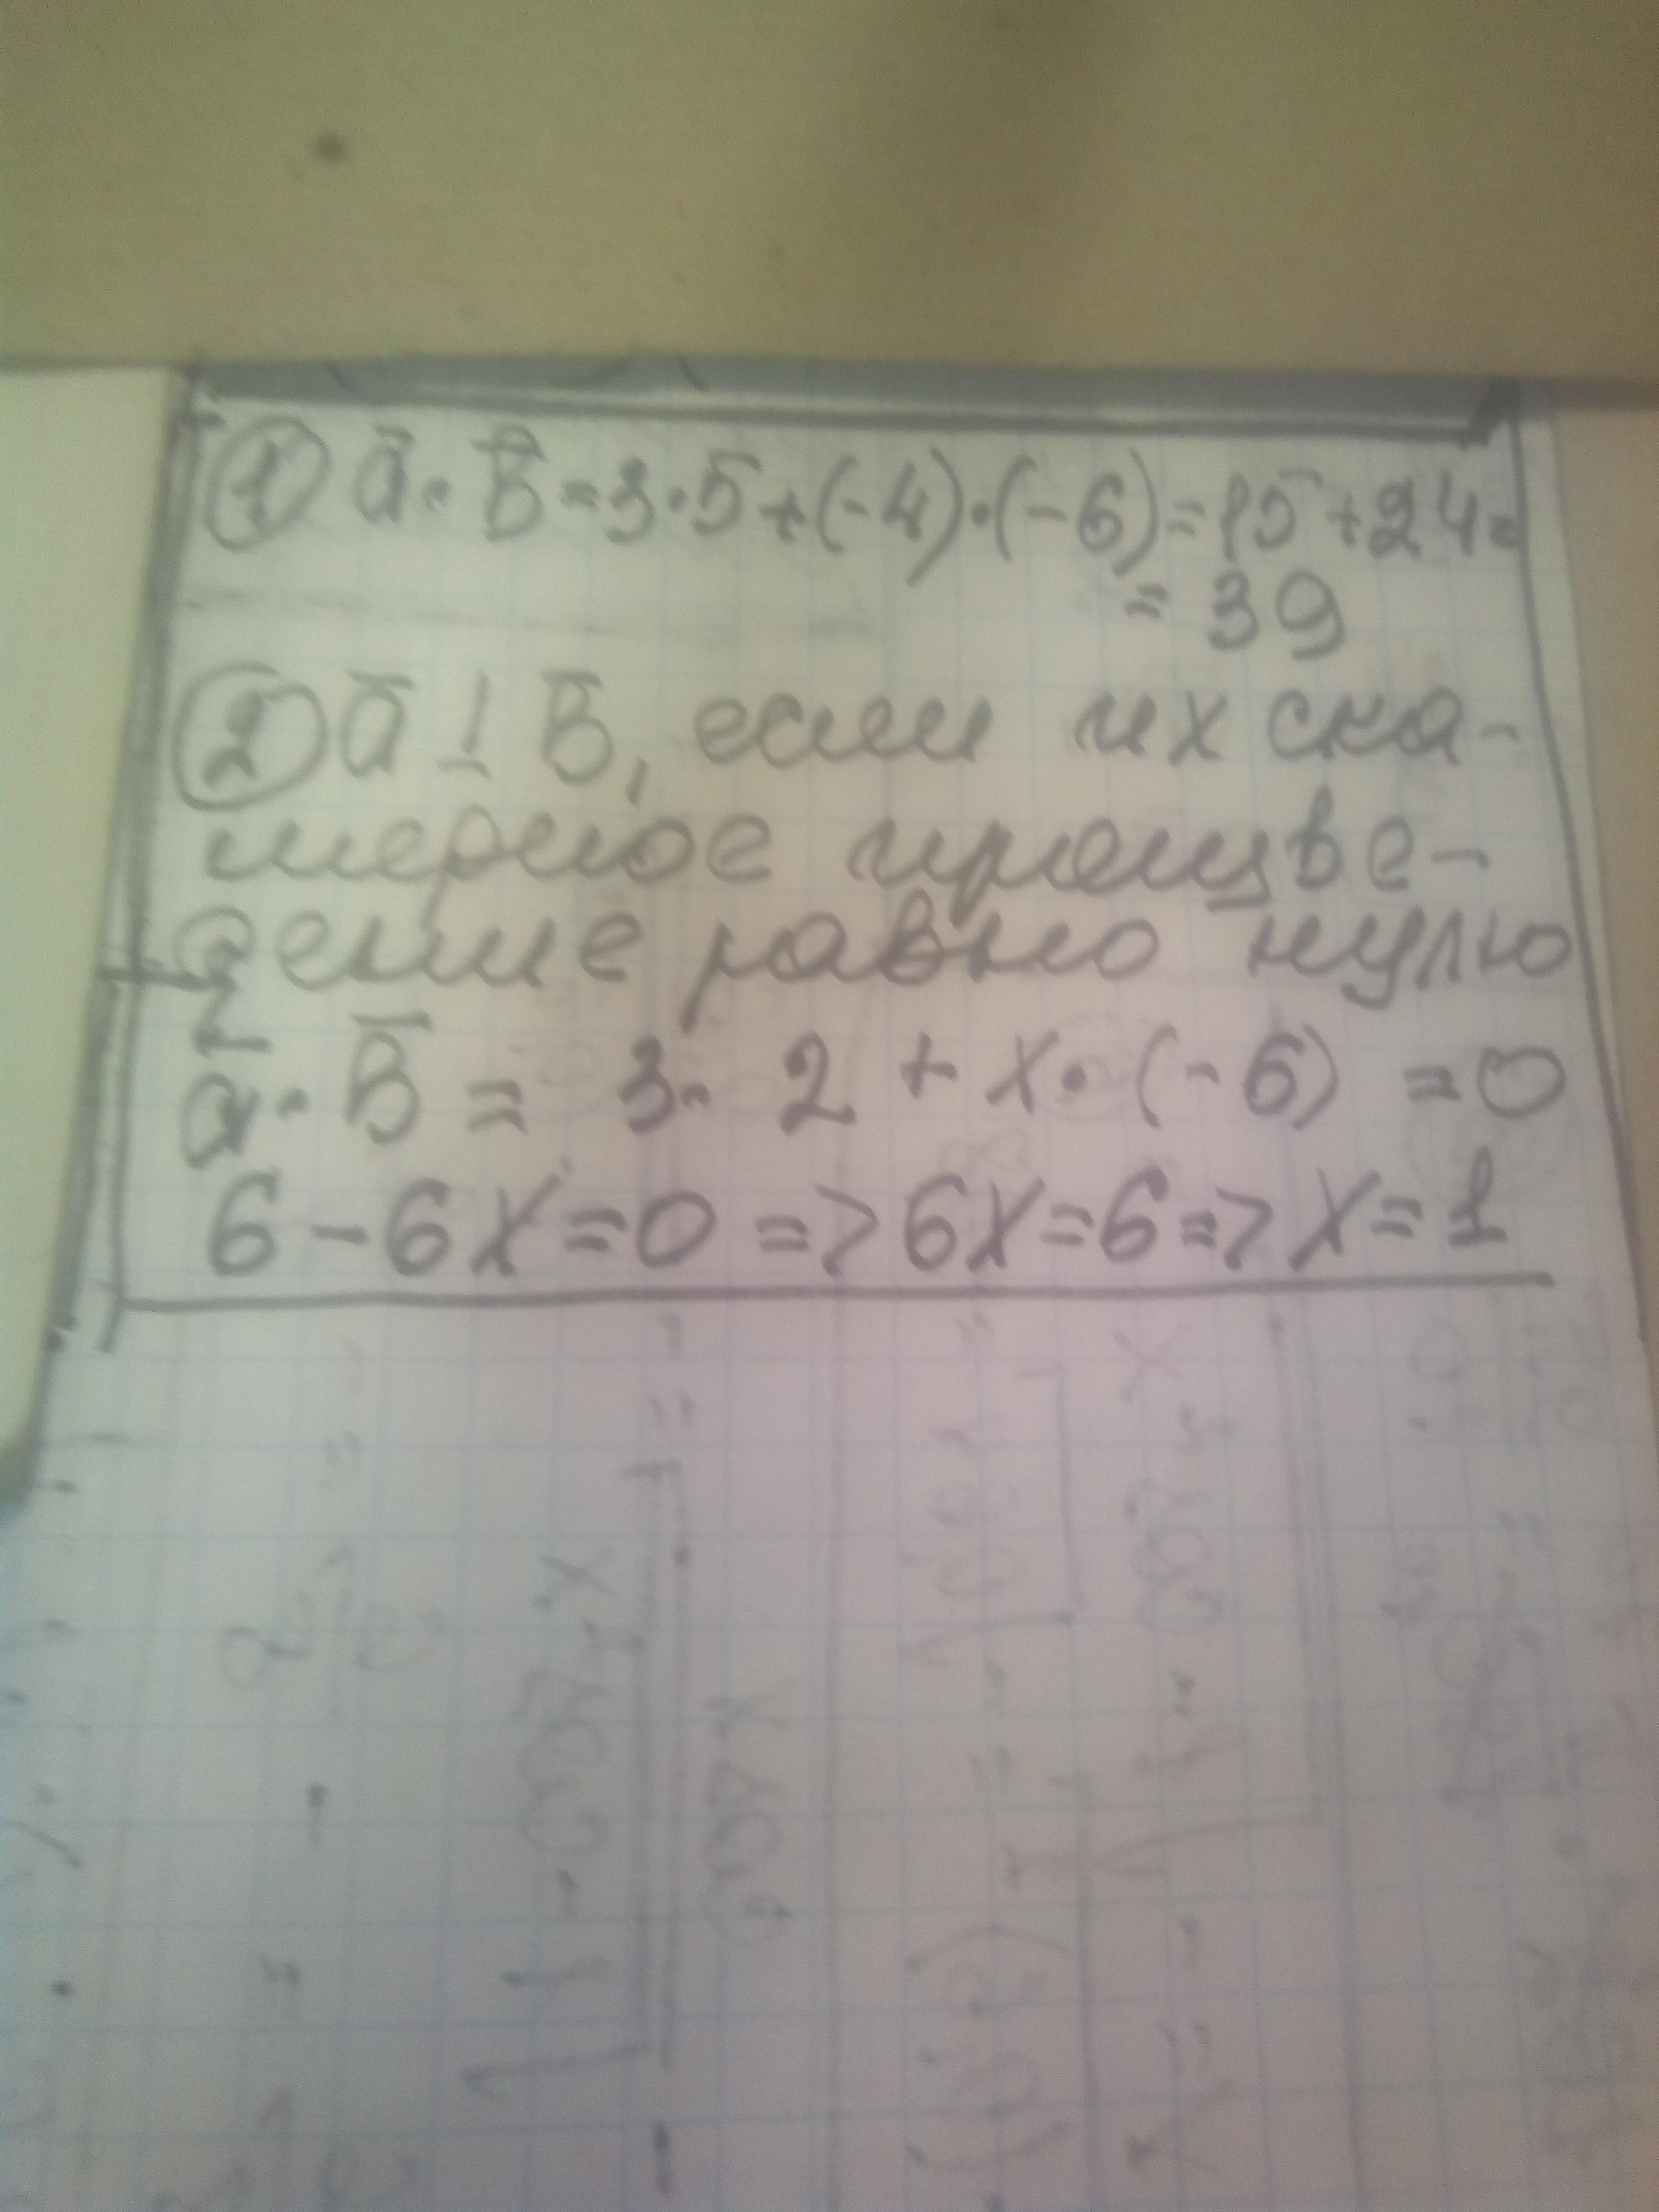 ① a̅ · b̅ = 3 · 5 + (-4) · (-6) = 15 + 24 =
= 39
② a̅ ⊥ b̅, если их ска-
лярное произве-
дение равно нулю
a̅ · b̅ = 3 · 2 + x · (-6) = 0
6 - 6x = 0 => 6x = 6 => x = 1